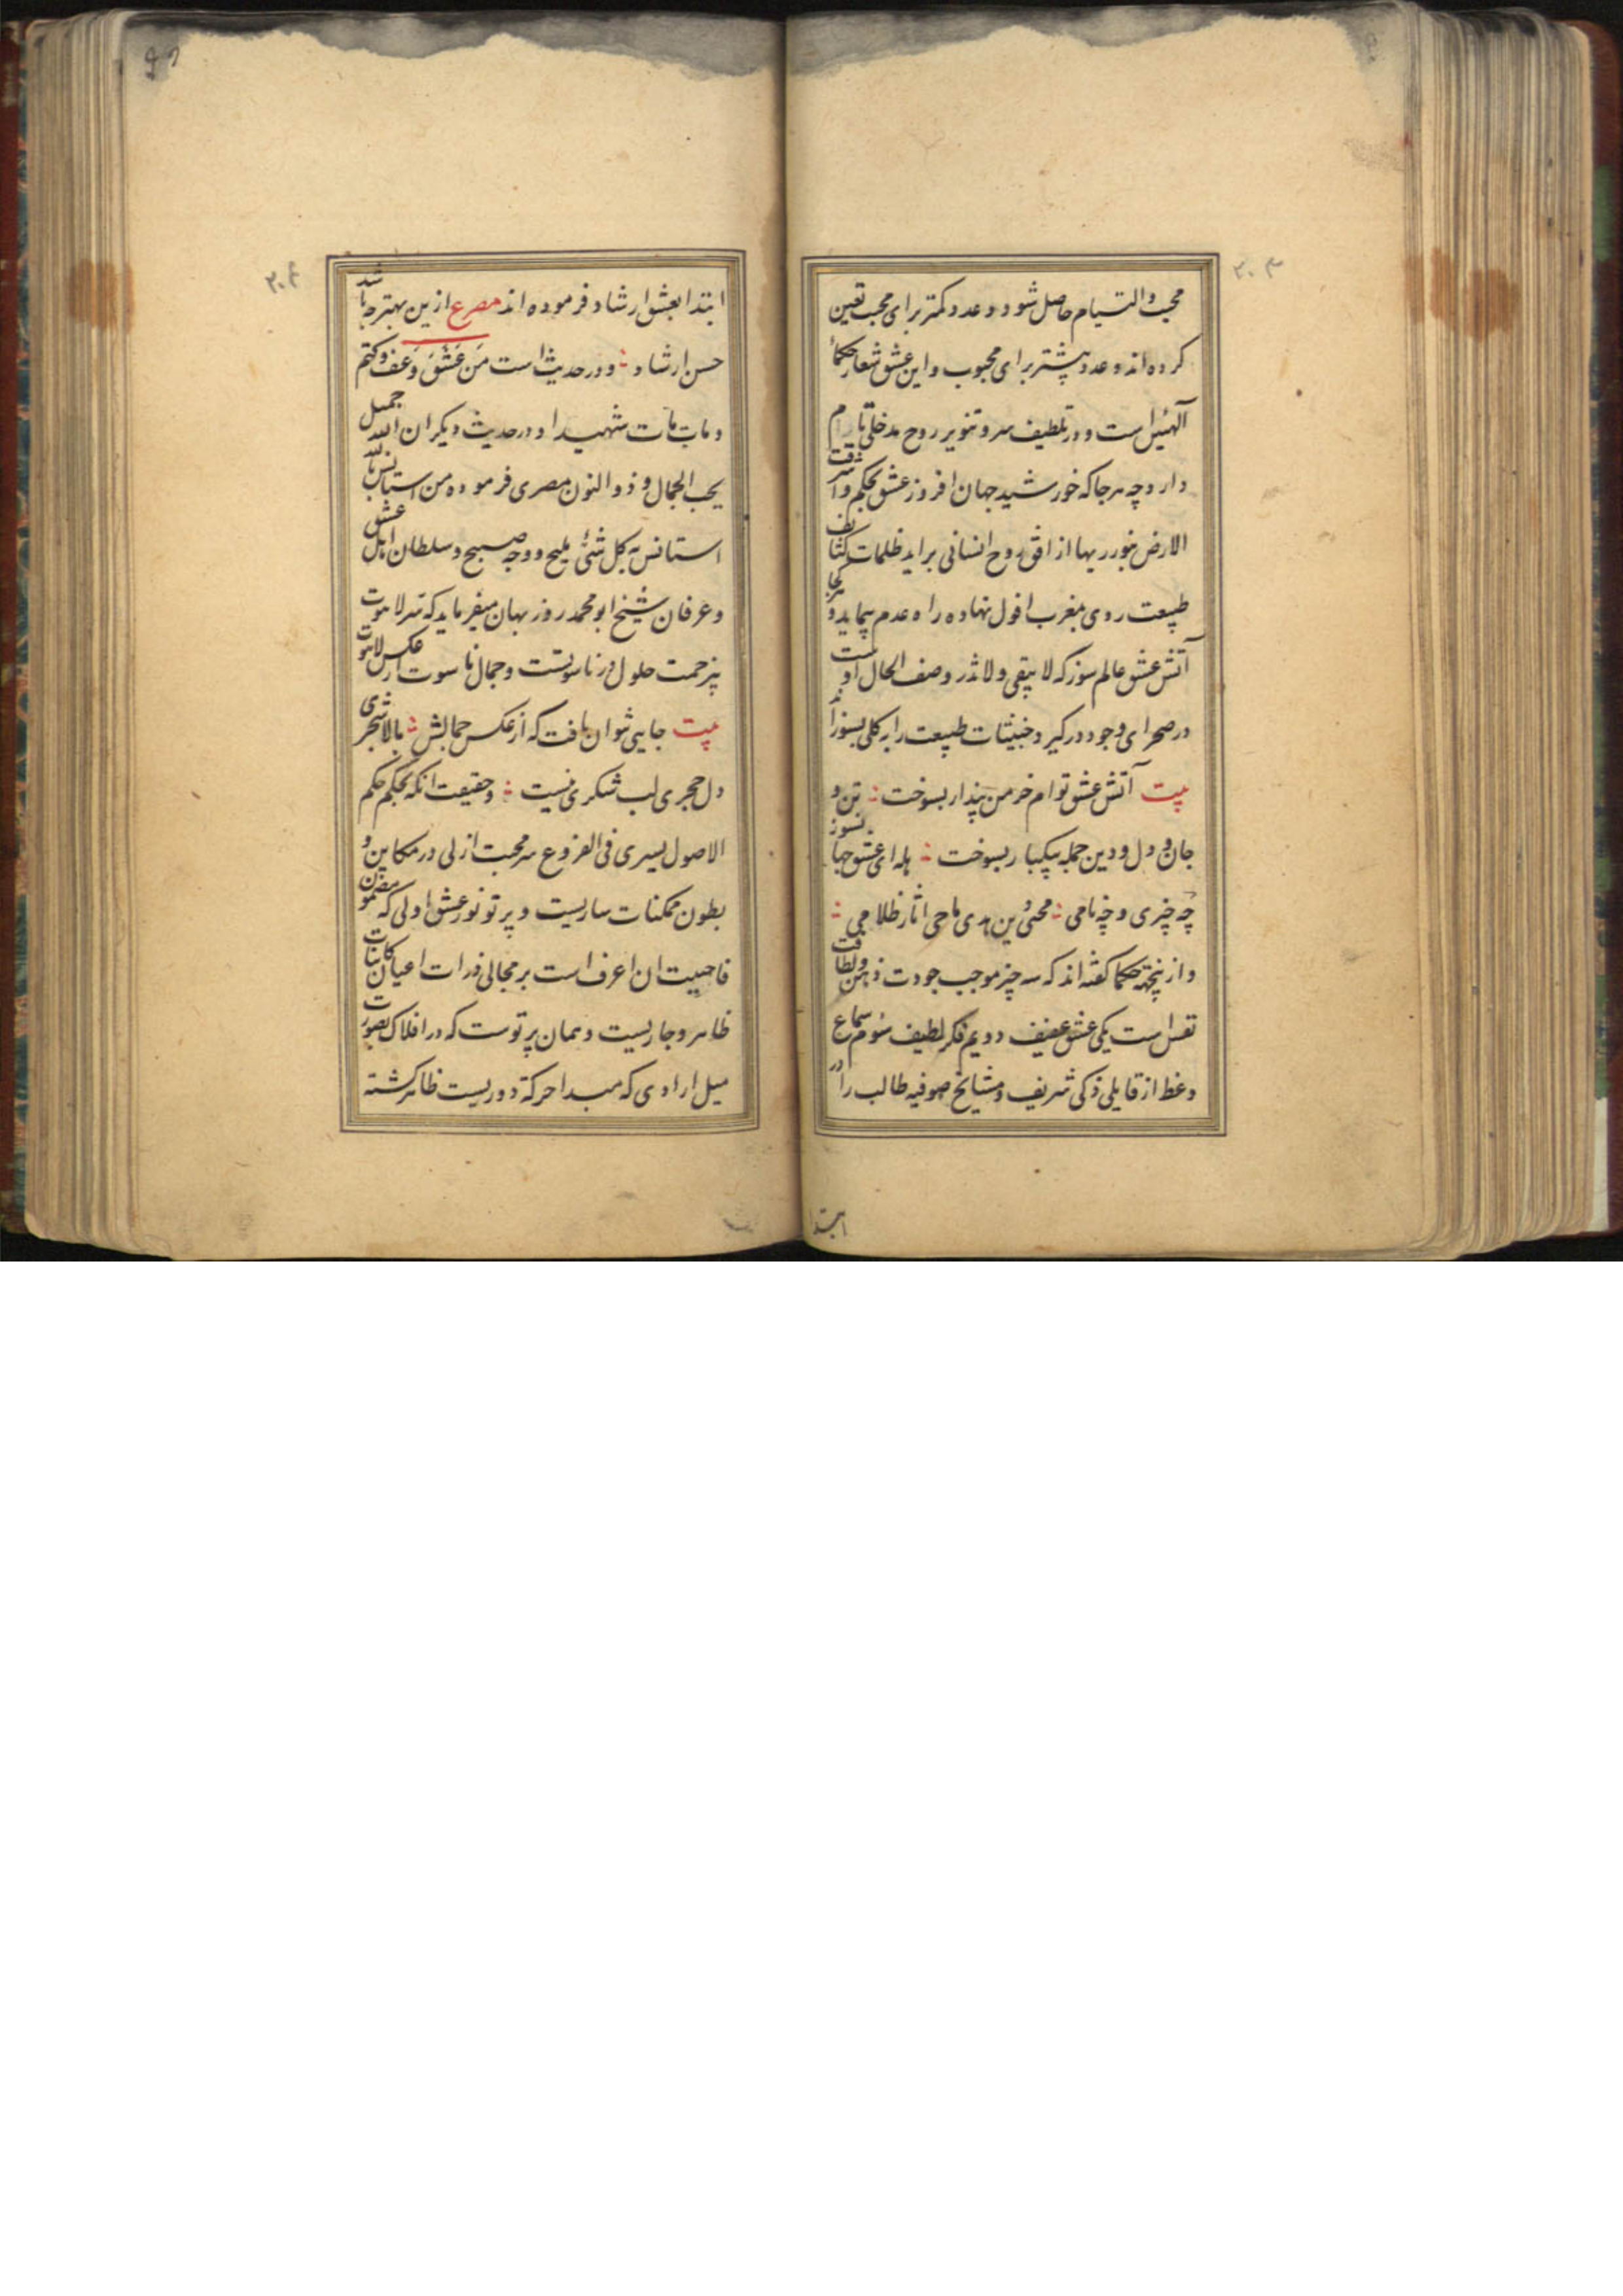 ۲۰۳
محب والتیام حاصل شود و عدد کمتر برای محب تعین
کرده اند و عدد بیشتر برای محبوب و این عشق شعار حکماء
آلهئین است و در تلطیف سر و تنویر روح مدخلی تام
دارد چه هر جا که خورشید جهان افروز عشق بحکم واشرقت
الارض بنور ربها از افق روح انسانی براید ظلمات کثائف
طبیعت روی بمغرب افول نهاده راه عدم پیماید و هر کجا
آتش عشق عالم سوز که لا یبقی ولا تذر وصف الحال اوست
در صحرای وجود در گیرد خبیثات طبیعت را بکلی بسوزاند
بیت آتش عشق توام خرمن پندار بسوخت تن و
جان و دل و دین جمله بیکبار بسوخت هله ای عشق جهانسوز
چه چیزی و چه نامی محیی دین هدی ماحی اثار ظلامی
و ازینجهة حکما کفته اند که سه چیز موجب جودت ذهن ولطافت
نفس است یکی عشق عفیف دویم فکر لطیف سوم سماع
وعظ از قایلی ذکی شریف و مشایخ صوفیه طالب را در
ابتدا
۲۰۴
ابتدا بعشق ارشاد فرموده اند مصرع ازین بهتر چه باشد
حسن ارشاد و در حدیث است مَن عَشَقَ وَعَفَ وکتم
ومات مات شهیدا و در حدیث دیکر ان الله جمیل
یحب الجمال و ذوالنون مصری فرموده من استانس بالله
استانس بکل شئ ملیح ووجه صبیح و سلطان اهل عشق
وعرفان شیخ ابو محمد روزبهان میفرماید که سر لاهوت
بیزحمت حلول در ناسوتست وجمال ناسوت از عکس لاهوت
بیت جایی نتوان یافت که از عکس جمالش بالای شجری
دل حجری لب شکری نیست و حقیقت انکه بحکم حکم
الاصول یسری فی الفروع سر محبت ازلی در مکامن و
بطون ممکنات ساریست و پرتو نور عشق اولی که مضمون
فاحببت ان اعرف است بر مجالی ذرات اعیان کائنات
ظاهر وجاریست و همان پرتوست که در افلاک بصورت
میل ارادی که مبدا حرکة دوریست ظاهر کشته